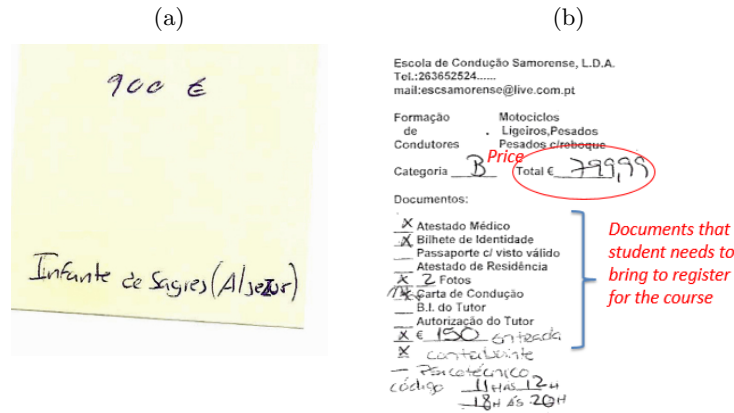 (a)
900 €
Infante de Sagres (Aljezur)
(b)
Escola de Condução Samorense, L.D.A.
Tel.:263652524......
mail:escsamorense@live.com.pt
Formação Motociclos
de . Ligeiros,Pesados
Condutores Pesados c/reboque
Price
Categoria B Total € 799,99
Documentos:
X Atestado Médico
X Bilhete de Identidade
Passaporte c/ visto válido
Atestado de Residência
X 2 Fotos
X Carta de Condução
B.I. do Tutor
Autorização do Tutor
X € 150 entrada
X contribuinte
Psicotécnico
código 11H ÀS 12H
18H ÀS 20H
Documents that
student needs to
bring to register
for the course